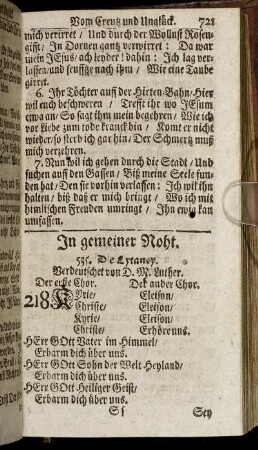 Vom Creutz und Unglück. 721
mich verirret / Und durch der Wollust Rosen-
gifft / In Dornen gantz verwirret: Da war
mein JEsus / ach leyder! dahin: Ich lag ver-
lassen / und seufftze nach ihm / Wie eine Taube
girret.
6. Ihr Töchter auff der Hirten-Bahn / Hier
wil euch beschweren / Trefft ihr wo JEsum
etwa an / So sagt ihm mein begehren / Wie ich
vor Liebe zum tode kranck bin / Komt er nicht
wieder / so sterb ich gar hin / Der Schmertz muß
mich verzehren.
7. Nun wil ich gehen durch die Stadt / Und
suchen auff den Gassen / Biß meine Seele fun-
den hat / Den sie vorhin verlassen: Ich wil ihn
halten / biß daß er mich bringt / Wo ich mit
himlischen Freuden umringt / Ihn ewig kan
umfassen.
In gemeiner Noht.
535. De Lytaney.
Verdeutschet von D. M. Luther.
Der erste Chor. Der ander Chor.
218 KYrie / Eleison /
Christe / Eleison /
Kyrie / Eleison /
Christe / Erhöre uns.
HErr GOtt Vater im Himmel /
Erbarm dich über uns.
HErr GOtt Sohn der Welt Heyland /
Erbarm dich über uns.
HErr GOtt Heiliger Geist /
Erbarm dich über uns.
Sf Sey